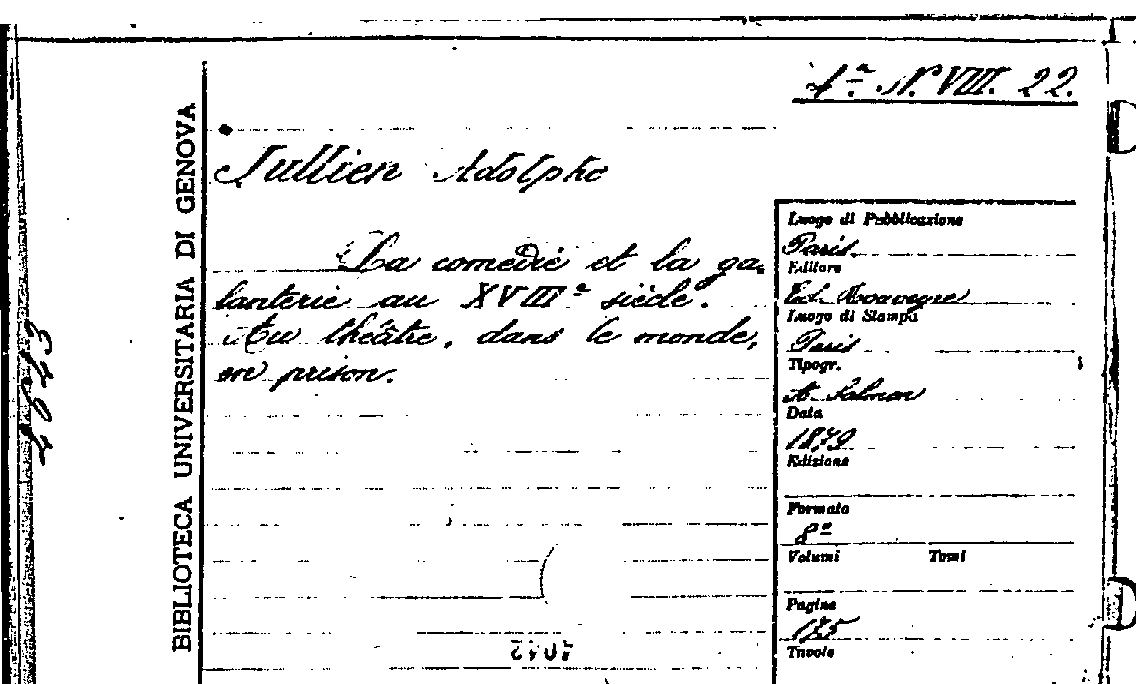 4ª. N. VIII. 22.
BIBLIOTECA UNIVERSITARIA DI GENOVA
Jullien Adolphe
La comédie et la ga-
lanterie au XVIIIº siècle.
Au théâtre, dans le monde,
en prison.
Luogo di Pubblicazione
Paris.
Editore
Ed. Rouveyre
Luogo di Stampa
Paris
Tipogr.
A. Salmon
Data
1879
Edizione
Formato
8º
Volumi Tomi
Pagine
175
Tavole